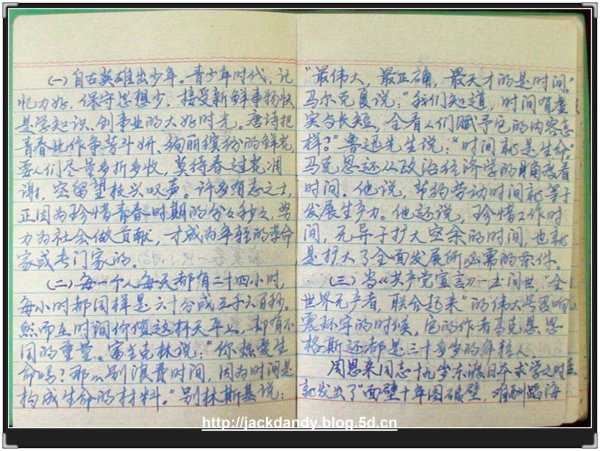 (一)自古英雄出少年。青少年时代,记
忆力好,保守思想少,接受新鲜事物快
是学知识、创事业的大好时光。唐诗把
青春比作争芳斗妍、绚丽缤纷的鲜花
要人们尽量多折多收,莫待春过花凋
谢,空留望枝兴叹声。许多有志之士,
正因为珍惜青春时期的分分秒秒,努
力为社会做贡献,才成为年轻的革命
家或专门家的。
(二)每一个人每天都有二十四小时,
每小时都同样是六十分或三千六百秒。
然而在时间价值这杆天平上,却有不
同的重量。富兰克林说:"你热爱生
命吗?那么别浪费时间,因为时间是
构成生命的材料。"别林斯基说:
"最伟大,最正确,最天才的是时间。"
马尔克夏说:"我们知道,时间有虚
实与长短,全看人们赋予它的内容怎
样?"鲁迅先生说:"时间就是生命"
马克思还从政治经济学的角度看
时间。他说,节约劳动时间就等于
发展生产力。他还说,珍惜工作时
间,无异于扩大空余的时间,也就
是扩大了全面发展所必需的条件。
(三)当《共产党宣言》一问世,"全
世界无产者,联合起来"的伟大号召响
震环宇的时候,它的作者马克思、恩
格斯还都是三十多岁的年轻人。
周恩来同志十九岁东渡日本求学之时
就发出了"面壁十年图破壁,难酬蹈海
http://jackdandy.blog.5d.cn